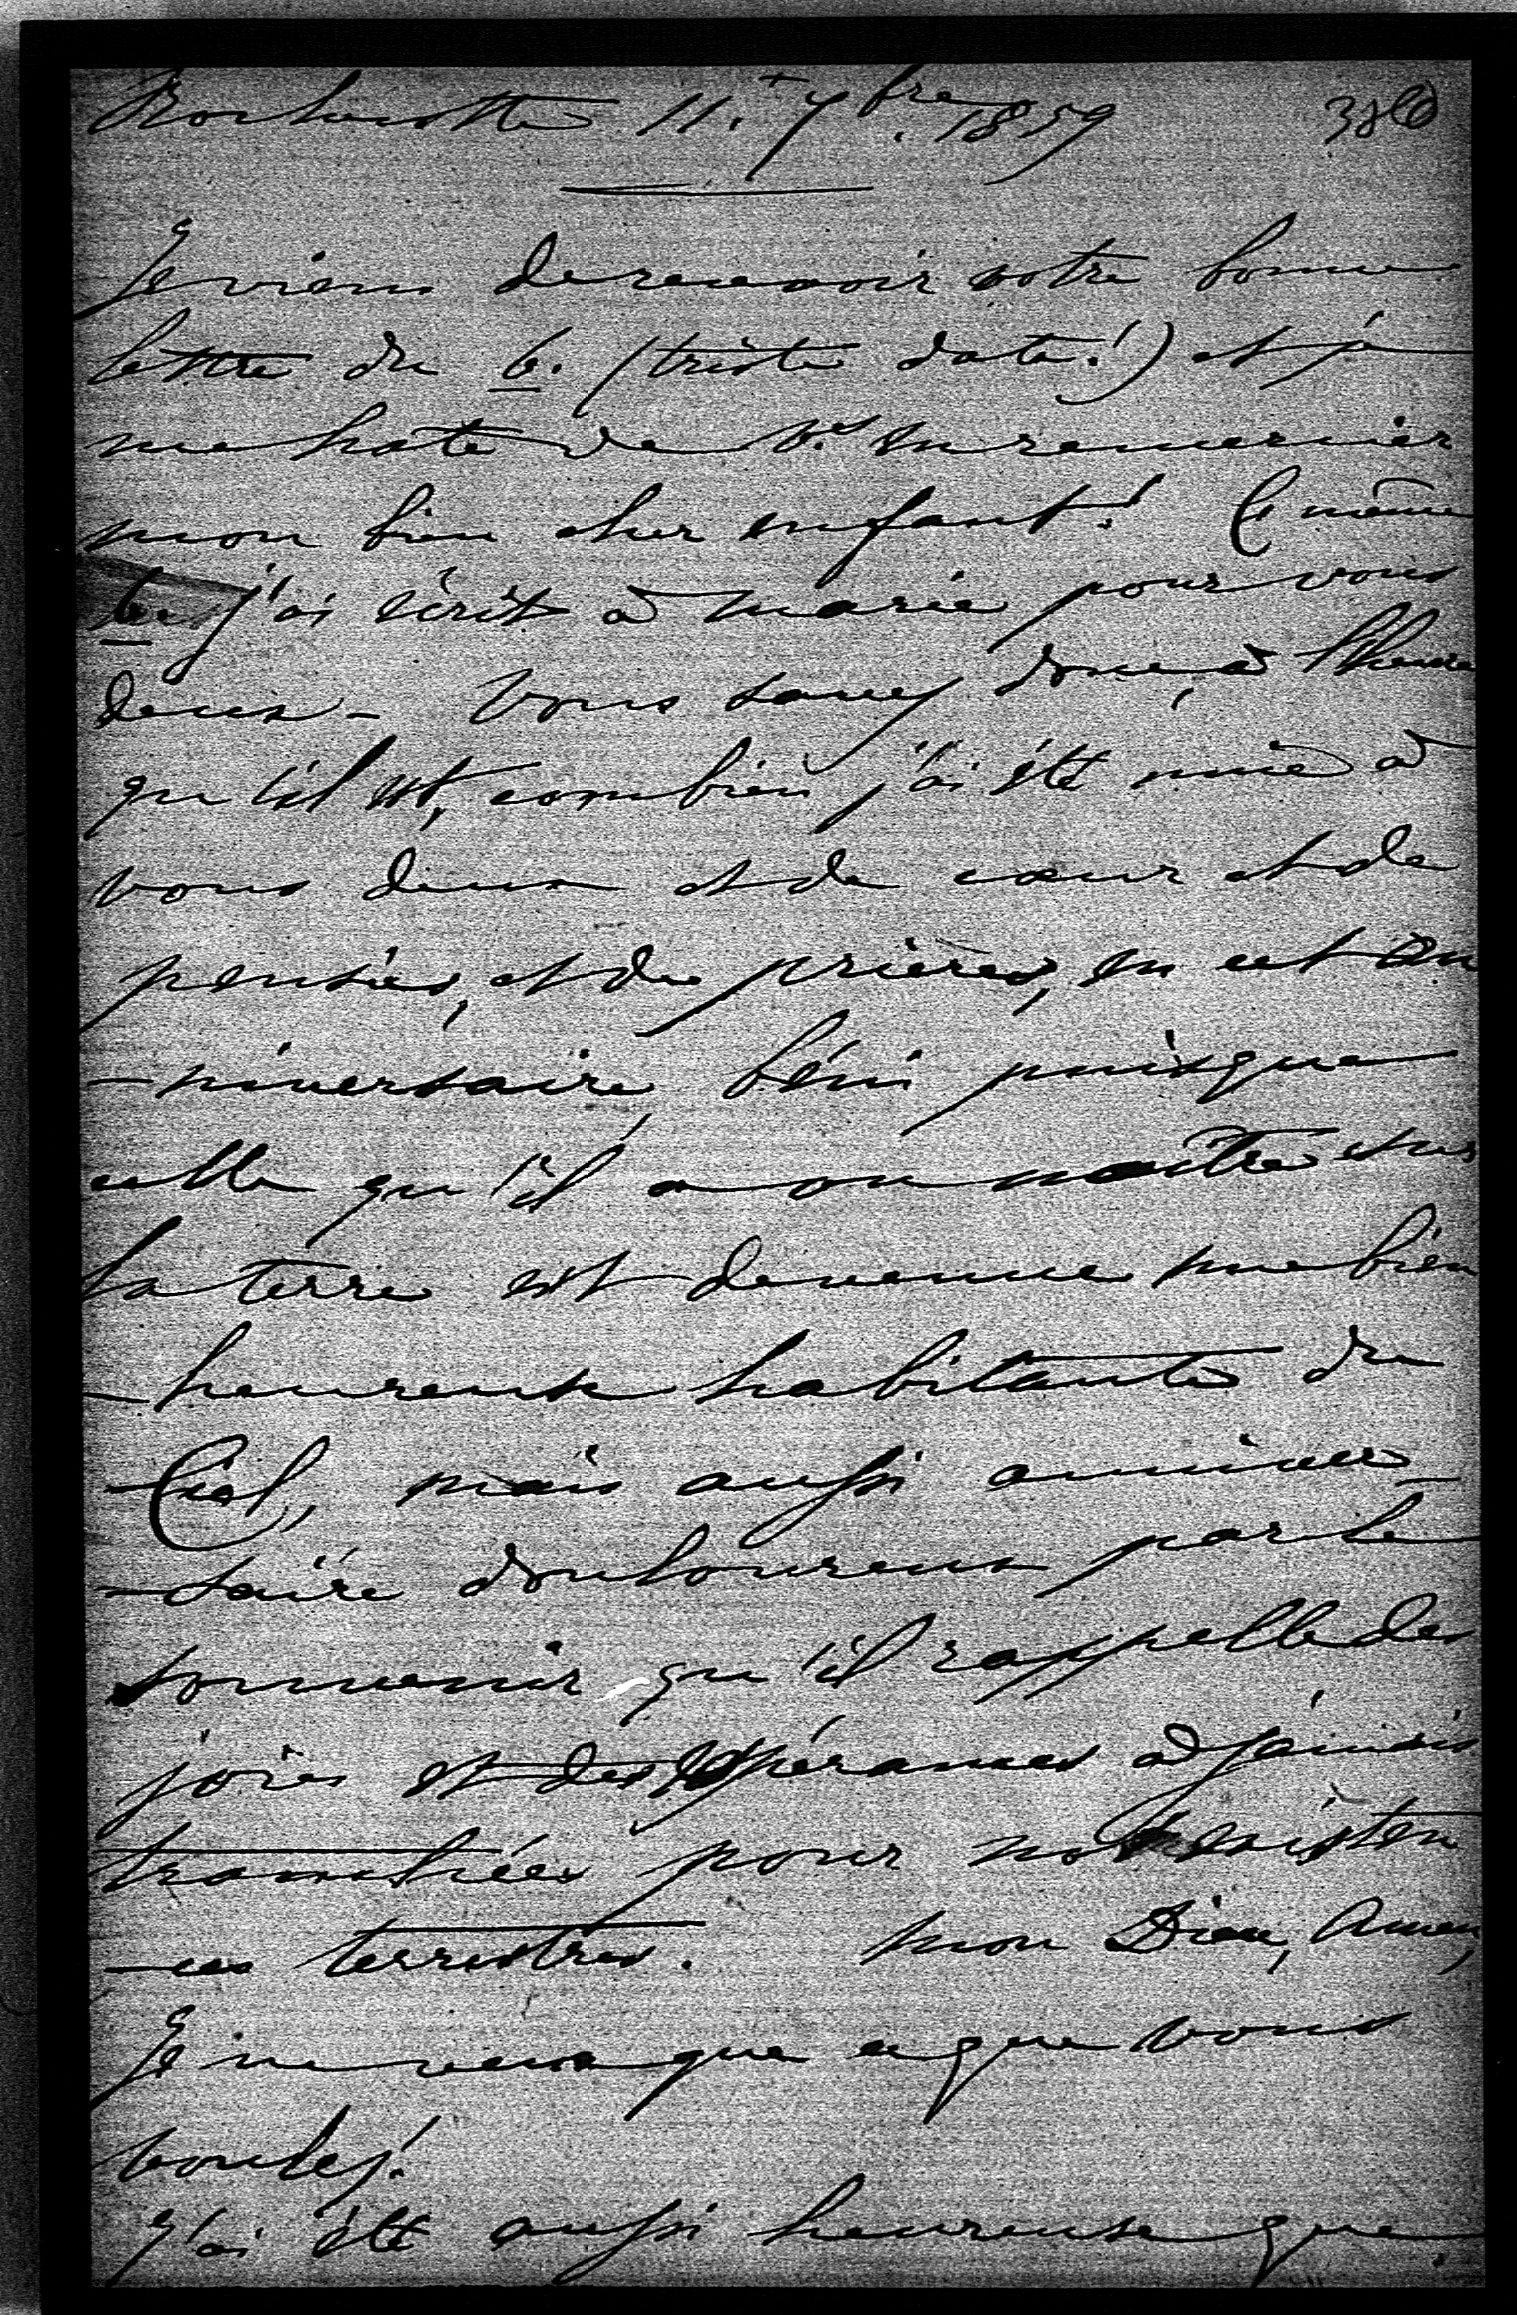 Rochecotte 11. 7bre. 1859
Je viens de recevoir votre bonne
lettre du 6. (triste date!) et je
me hate de Vs en remercier
mon bien cher enfant! Ce même
6. j'ai écrit à Marie pour vous
deux - Vous savez donc, à l'heure
qu'il est, combien j'ai été unie à
vous deux et de cœur et de
pensées, et de prières, en cet an
-niversaire, béni puisque
celle qu'il a vu naître sur
la terre est devenue une bien
-heureuse habitante du
Ciel, mais aussi anniver-
-saire douloureux par le
souvenir qu'il rappelle des
joies et des espérances à jamais
tranchées pour nos existen
-ces terrestres. Mon Dieu, Amen,
Je ne veux que ce que vous
voulez!
J'ai été aussi heureuse que